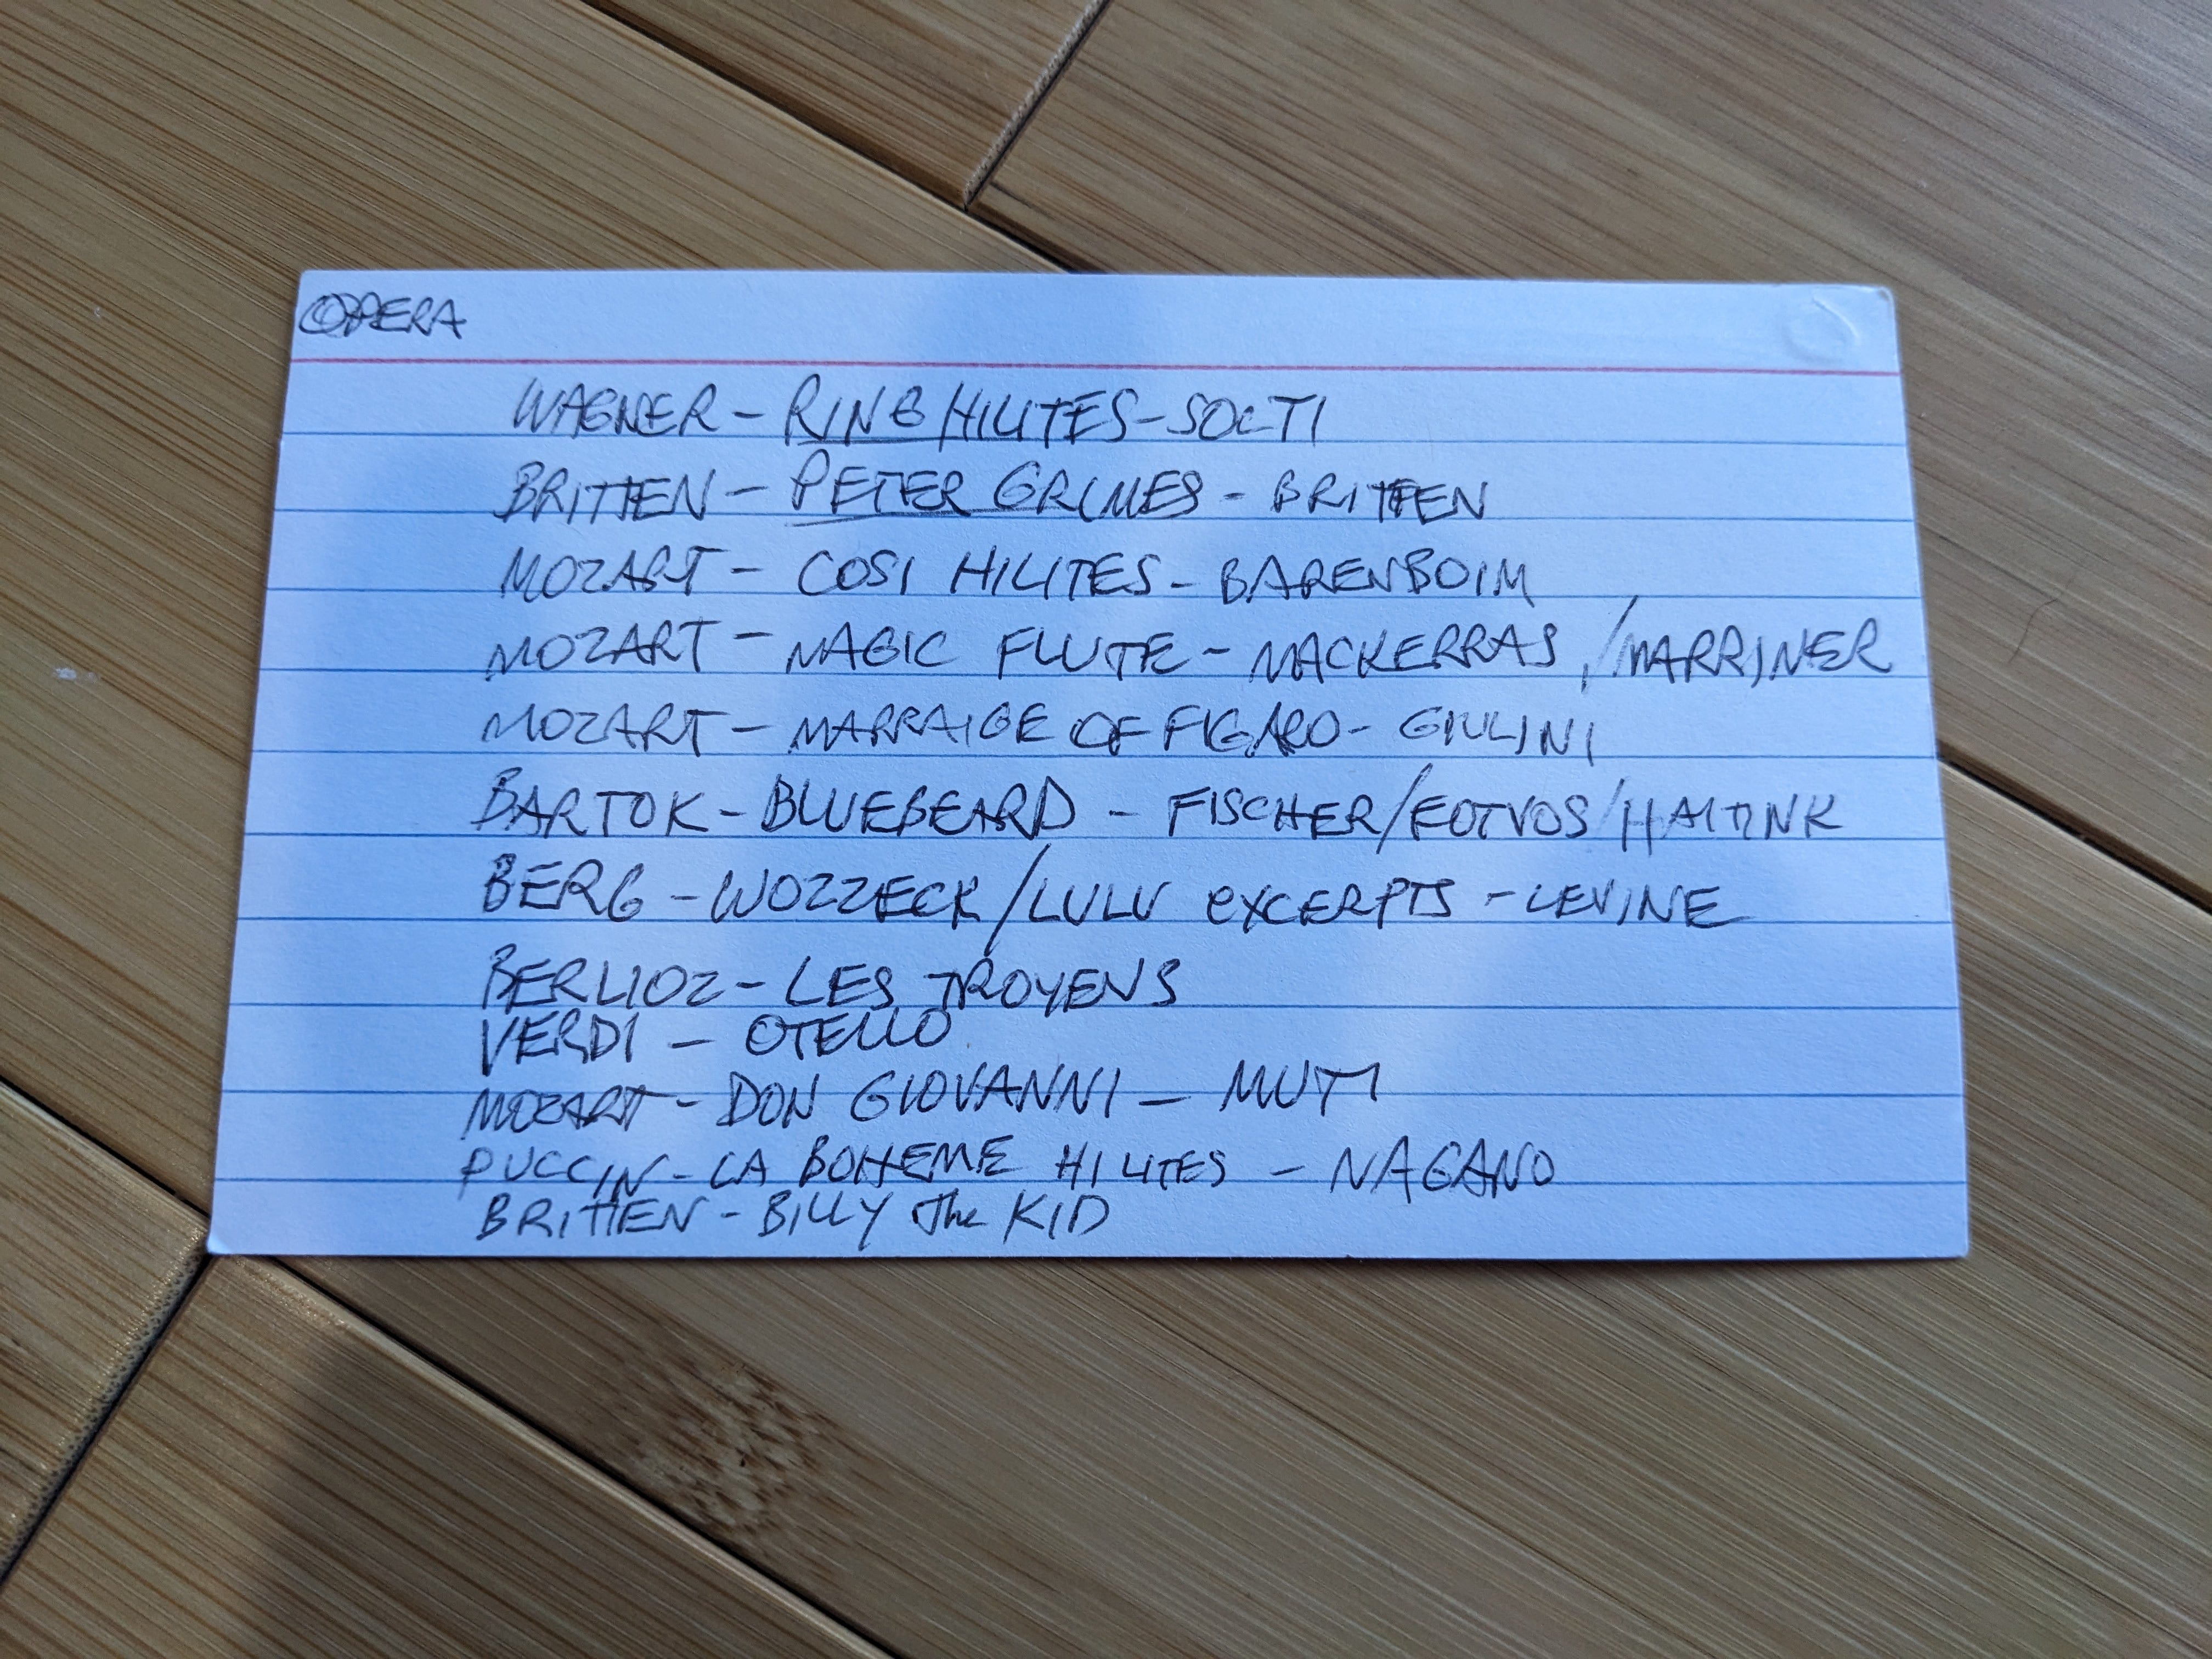 OPERA
WAGNER - RING HILITES - SOLTI
BRITTEN - PETER GRIMES - BRITTEN
MOZART - COSI HILITES - BARENBOIM
MOZART - MAGIC FLUTE - MACKERRAS / MARRINER
MOZART - MARRAIGE OF FIGARO - GIULINI
BARTOK - BLUEBEARD - FISCHER/EOTVOS/HAITINK
BERG - WOZZECK/LULU EXCERPTS - LEVINE
BERLIOZ - LES TROYENS
VERDI - OTELLO
MOZART - DON GIOVANNI - MUTI
PUCCINI - LA BOHEME HILITES - NAGANO
BRITTEN - BILLY The KID